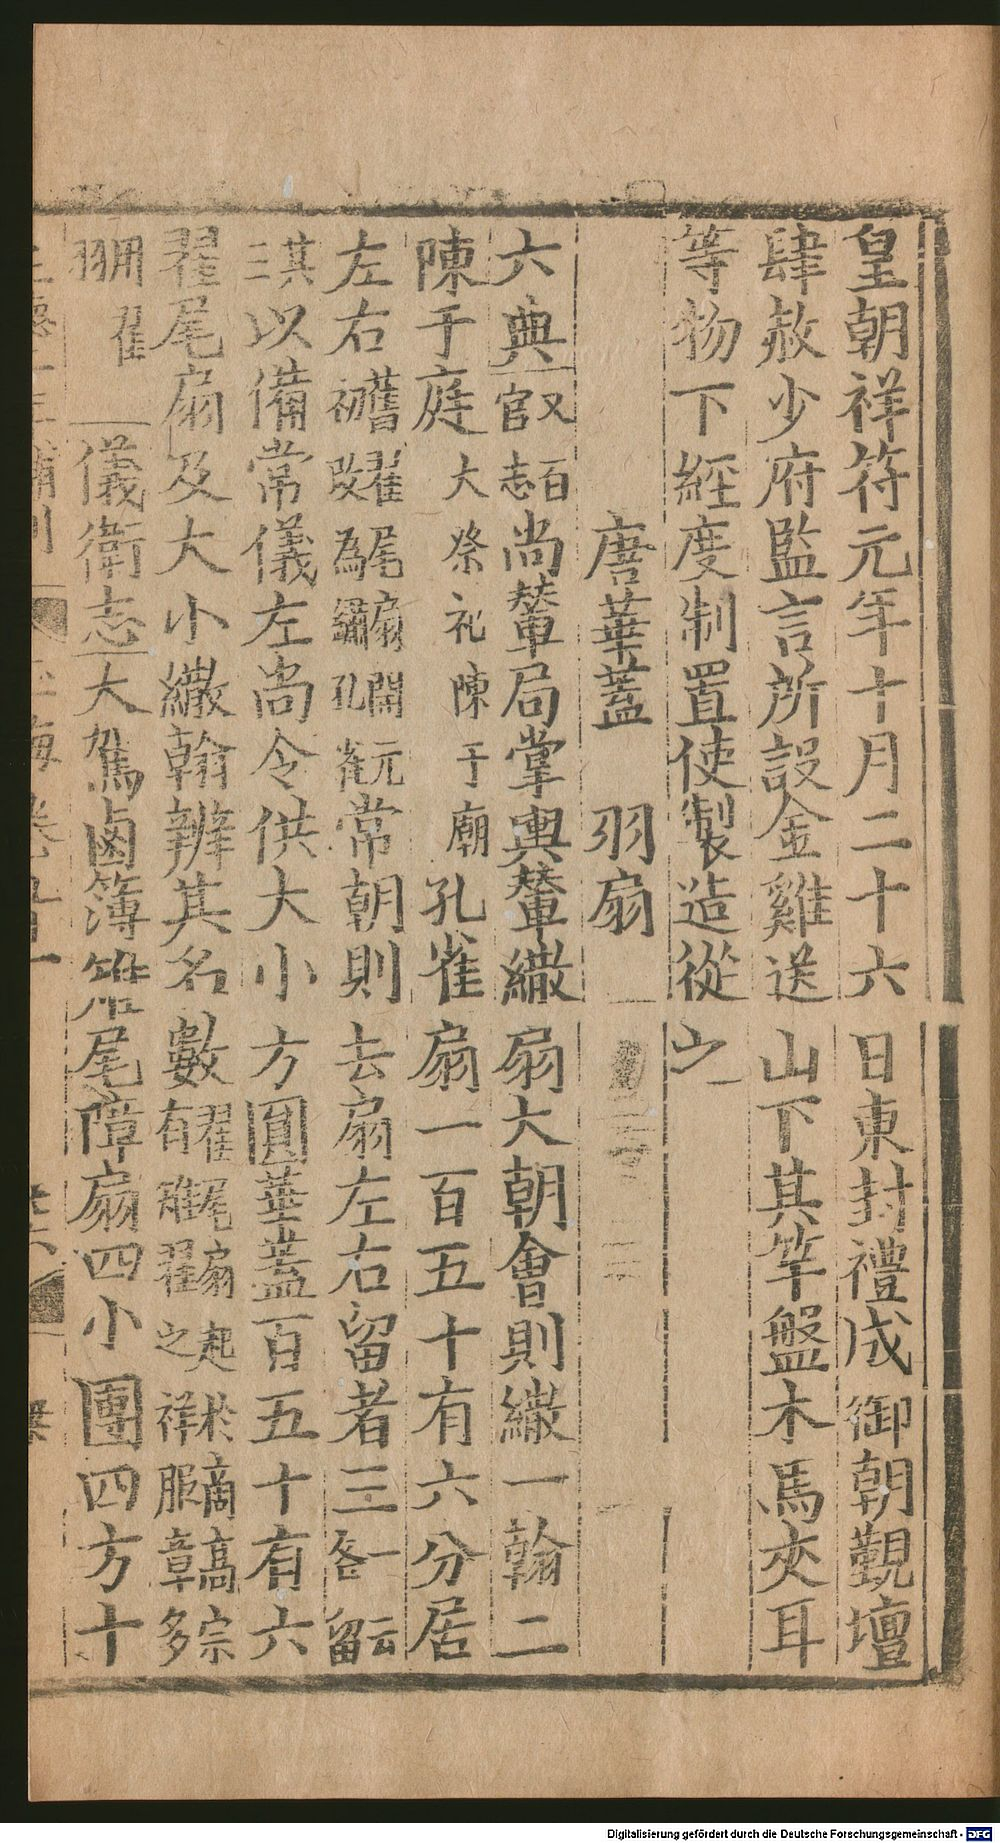 皇朝祥符元年十月二十六日東封禮成御朝覲壇
肆赦少府監言所設金雞送山下其竿盤木馬夾耳
等物下經度制置使製造從之
唐華蓋 羽扇
六典又百官志尚輦局掌輿輦繖扇大朝會則繖一翰二
陳于庭大祭祀陳于廟孔雀扇一百五十有六分居
左右舊翟尾扇開元初改為繡孔雀常朝則去扇左右留者三一云各留
其三以備常儀左尚令供大小方圓華蓋百五十有六
翟尾扇及大小繖翰辨其名數翟尾扇起於商高宗有雊翟之祥服章多
用翟羽儀衛志大駕鹵簿雉尾障扇四小團四方十
Digitalisierung gefördert durch die Deutsche Forschungsgemeinschaft - DFG